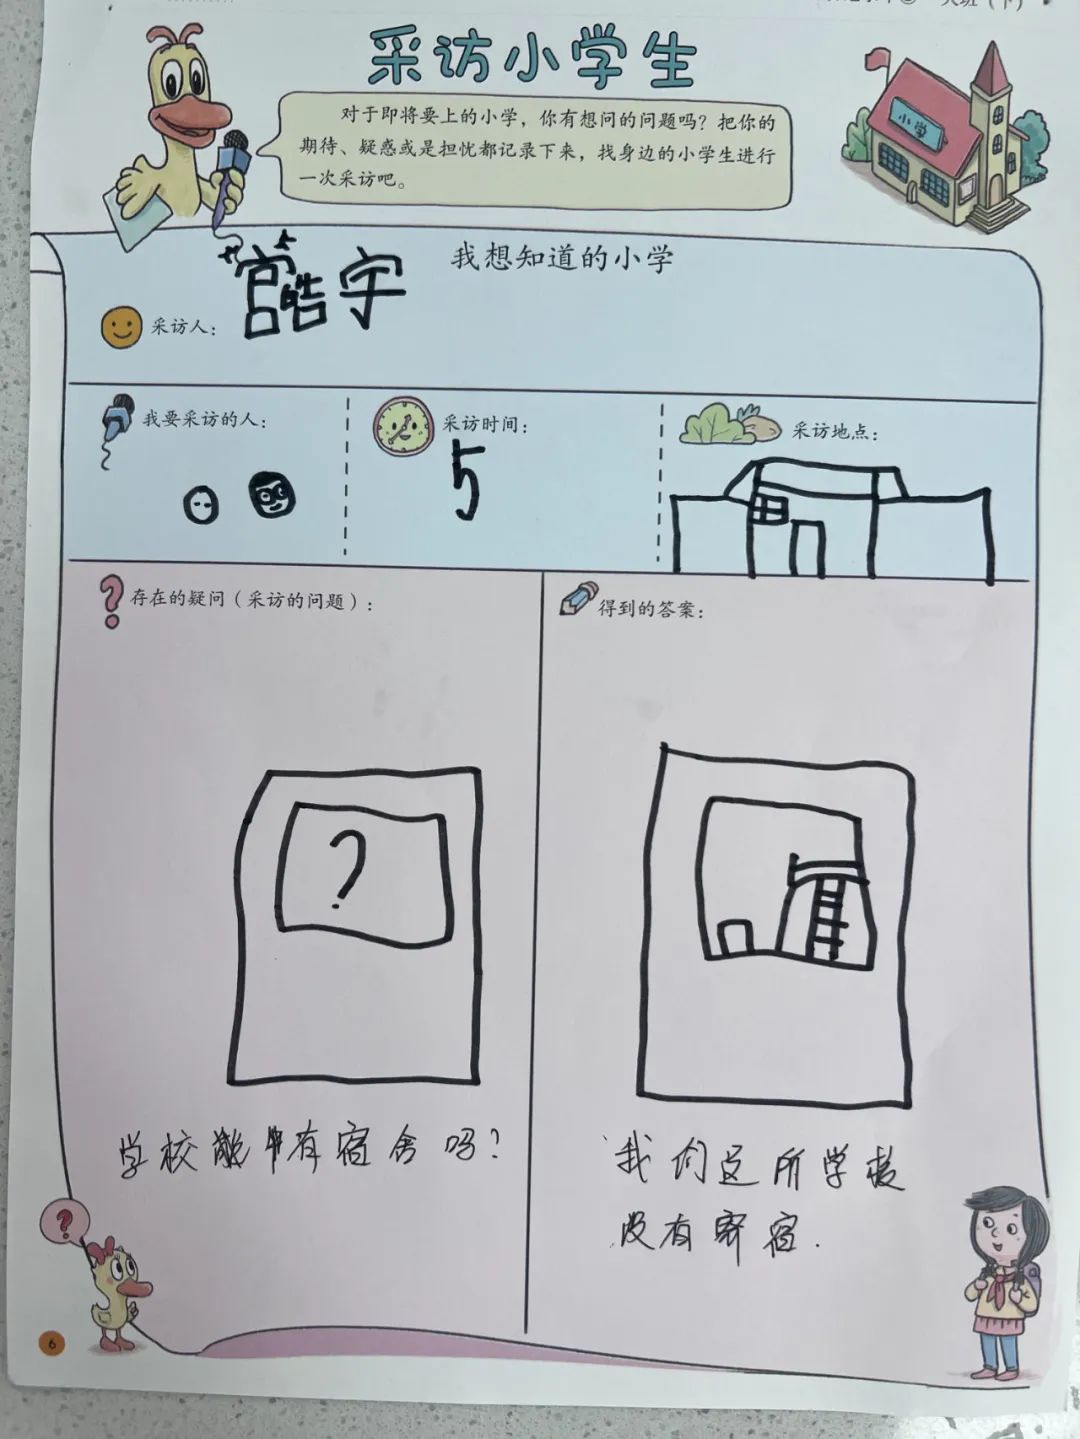 大班（下）
采访小学生
对于即将要上的小学，你有想问的问题吗？把你的
期待、疑惑或是担忧都记录下来，找身边的小学生进行
一次采访吧。
小学
我想知道的小学
采访人：宫皓宇
我要采访的人：
采访时间：
5
采访地点：
存在的疑问（采访的问题）：
得到的答案：
?
学校 有宿舍吗？
我们这所学校
没有寄宿.
?
6